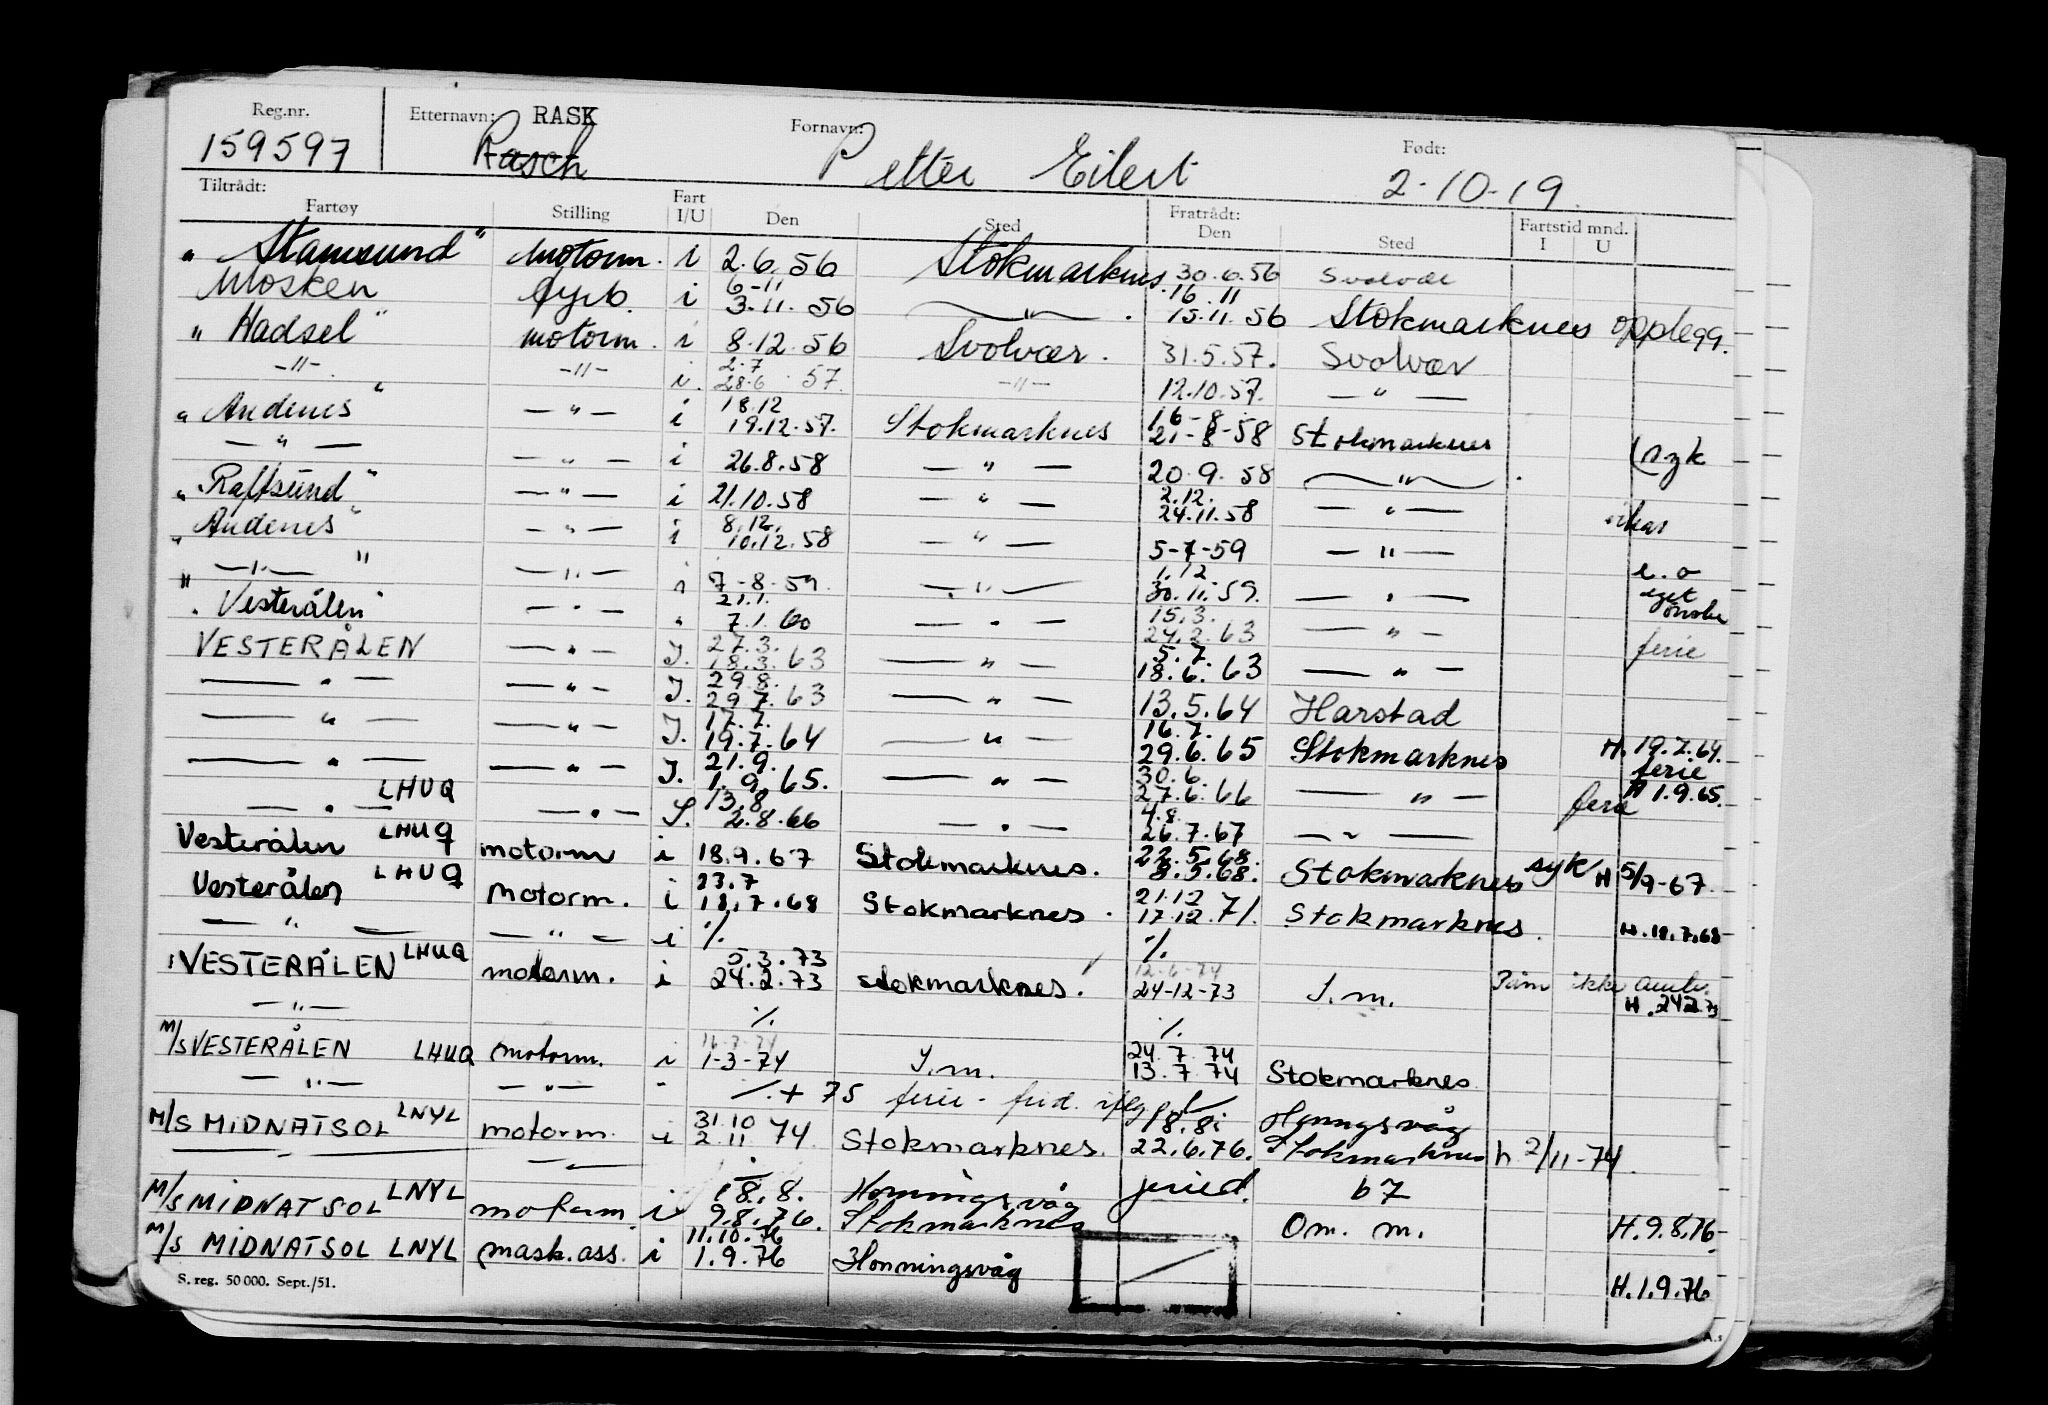 Reg.nr. Etternavn: RASK Fornavn: Født:
159597 Rasch Petter Eilert 2-10-19.
Tiltrådt: Fratrådt:
Fartøy Stilling Fart I/U Den Sted Den Sted Fartstid mnd. I U
"Stamsund" motorm. i 2.6.56 Stokmarknes 30.6.56 Svolvær
6-11 16.11
Mosken fyrb. i 3.11.56 —"— 15.11.56 Stokmarknes opplegg.
"Hadsel" motorm. i 8.12.56 Svolvær. 31.5.57. Svolvær
2.7
-"- -"- i. 28.6.57. -"- 12.10.57. —"—
18.12 16-8
"Andenes" —"— i 19.12.57. Stokmarknes 21-8-58 Stokmarknes
—"— —"— i 26.8.58 —"— 20.9.58 —"— syk
2.12.
"Raftsund" —"— i 21.10.58 —"— 24.11.58 —"—
8.12.
"Andenes" —"— i 10.12.58 —"— 5-7-59 —"—
1.12.
" —"— " —"— i 7-8-59. —"— 30.11.59. —"— e.o
21.1. 15.3. eget ønske
"Vesterålen" —"— " 7.1.60 —"— 24.2.63 —"— ferie
27.3. 5.7.
VESTERÅLEN —"— I. 18.3.63 —"— 18.6.63 —"—
29.8.
—"— —"— I. 29.7.63 —"— 13.5.64 Harstad
17.7. 16.7.
—"— —"— I. 19.7.64 —"— 29.6.65 Stokmarknes H. 19.7.64. ferie
21.9. 30.6.
—"— —"— I. 1.9.65. —"— 27.6.66 —"— ferie H 1.9.65.
13.8. 4.8.
—"— LHUQ —"— I. 2.8.66 —"— 26.7.67 —"—
22.5.68.
Vesterålen LHUQ motorm i 18.9.67 Stokmarknes. 8.5.68. Stokmarknes syk H 5/9-67.
23.7 21.12
Vesterålen LHUQ motorm. i 18.7.68 Stokmarknes. 17.12.71. Stokmarknes. H.18.7.68
—"— —"— i ./. ./.
5.3.73 12-6-74
VESTERÅLEN LHUQ motorm. i 24.2.73 stokmarknes. 24-12-73 S.m. ikke H.24.2.73
-"- ./. ./.
24.7.74
M/S VESTERÅLEN LHUQ motorm. i 1-3-74 S.m. 13.7.74 Stokmarknes
—"— —"— " ./.+ 75 ferie -
31.10 18.8: Honningsvåg
M/S MIDNATSOL LNYL motorm. i 2.11 74. Stokmarknes. 22.6.76. Stokmarknes h. 2/11-74.
—"— —"—
18.8. Honningsvåg b7
M/S MIDNATSOL LNYL motorm. i 9.8.76. Stokmarknes Om. m. H.9.8.76
11.10.76
M/S MIDNATSOL LNYL mask.ass. i 1.9.76 Honningsvåg H.1.9.76
S. reg. 50 000. Sept./51.